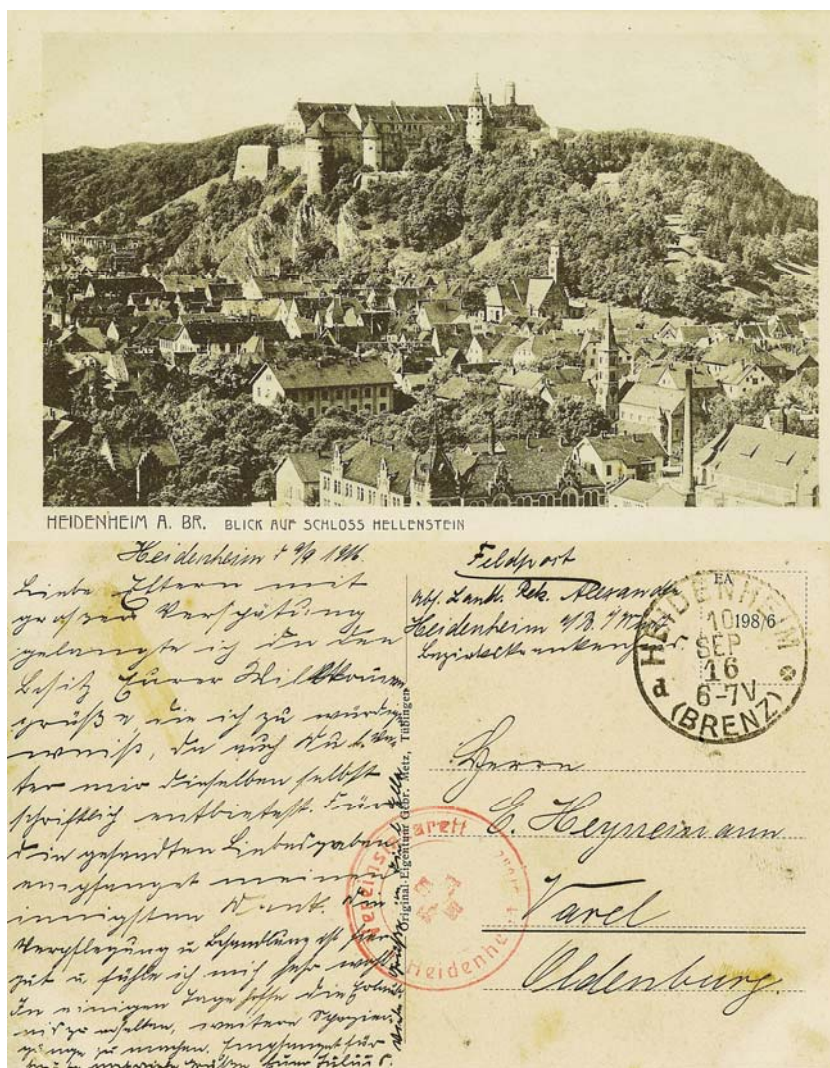 HEIDENHEIM A. BR. BLICK AUF SCHLOSS HELLENSTEIN
Heidenheim 9/9 1916.
Liebe Eltern mit
großer Verspätung
gelangte ich in den
Besitz Eurer Willkommen
grüße die ich zu würdi
weiß, da auch du l. Va-
ter mir dieselben selbst
schriftlich entbietest. Für
die gesandten Liebesgaben
empfanget meinen
innigsten Dank. Die
Verpflegung u. Behandlung ist hier
gut u. fühle ich mich sehr wohl
In einigen Tage hoffe die Erlaub
nis zu erhalten, weitere Spazier
gänge zu machen. Empfanget für
heute Grüße Euer Julius.
Original-Eigentum Gebr. Metz, Tübingen
Feldpost
Abs. Landst. Rek. Alexander
Heidenheim a/B.
Bezirkskrankenh
EA
198/6
HEIDENHEIM
10
SEP
16
6-7V
d (BRENZ)
Herrn
E. Heynemann
Varel
Oldenburg.
Vereinslazarett
Heidenhe